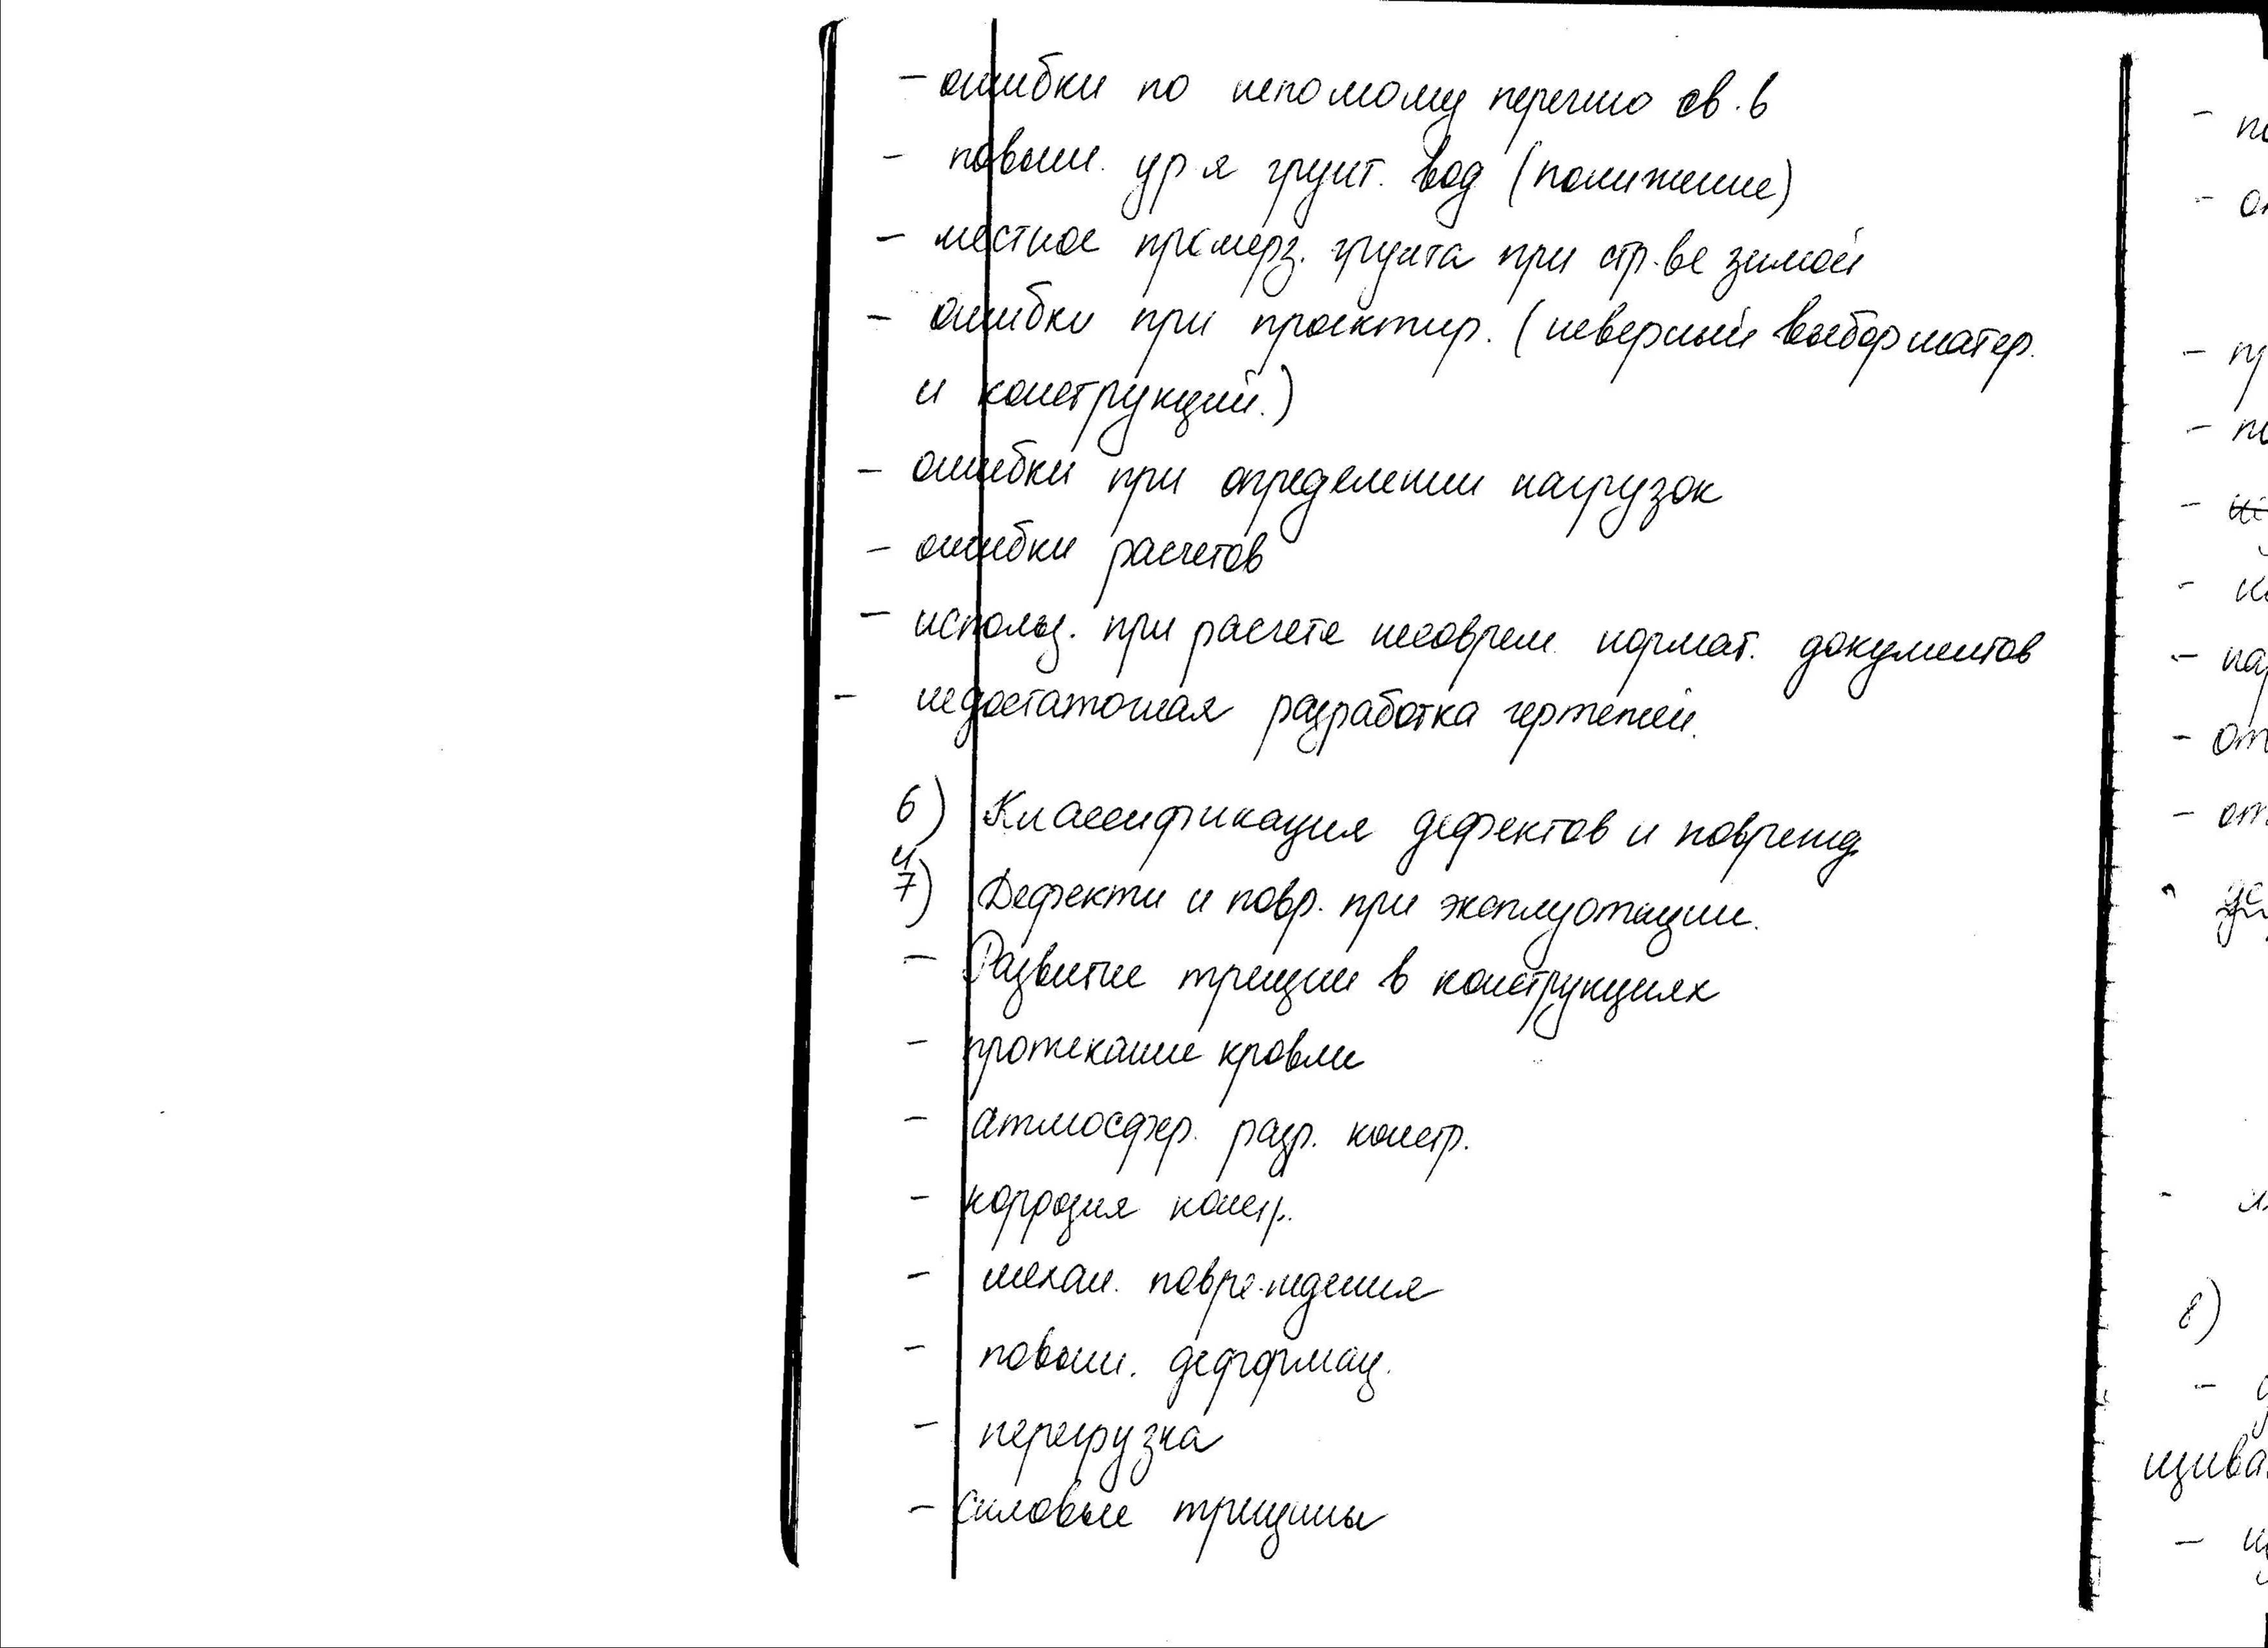 - ошибки по неполному перечню св-в
- повыш. ур-я грунт. вод (понижение)
- местное промерз. грунта при стр-ве зимой
- ошибки при проектир. (неверный выбор матер.
и конструкций.)
- ошибки при определении нагрузок
- ошибки расчетов
- использ. при расчете несоврем. нормат. документов
- недостаточная разработка чертежей.
6) Классификация дефектов и поврежд.
и
7) Дефекти и повр. при эксплуатации.
- Развитие трещин в конструкциях
- протекание кровли
- атмосфер. разр. констр.
- коррозия констр.
- механ. повреждения
- повыш. деформац.
- перегрузка
- Силовые трещины
8)